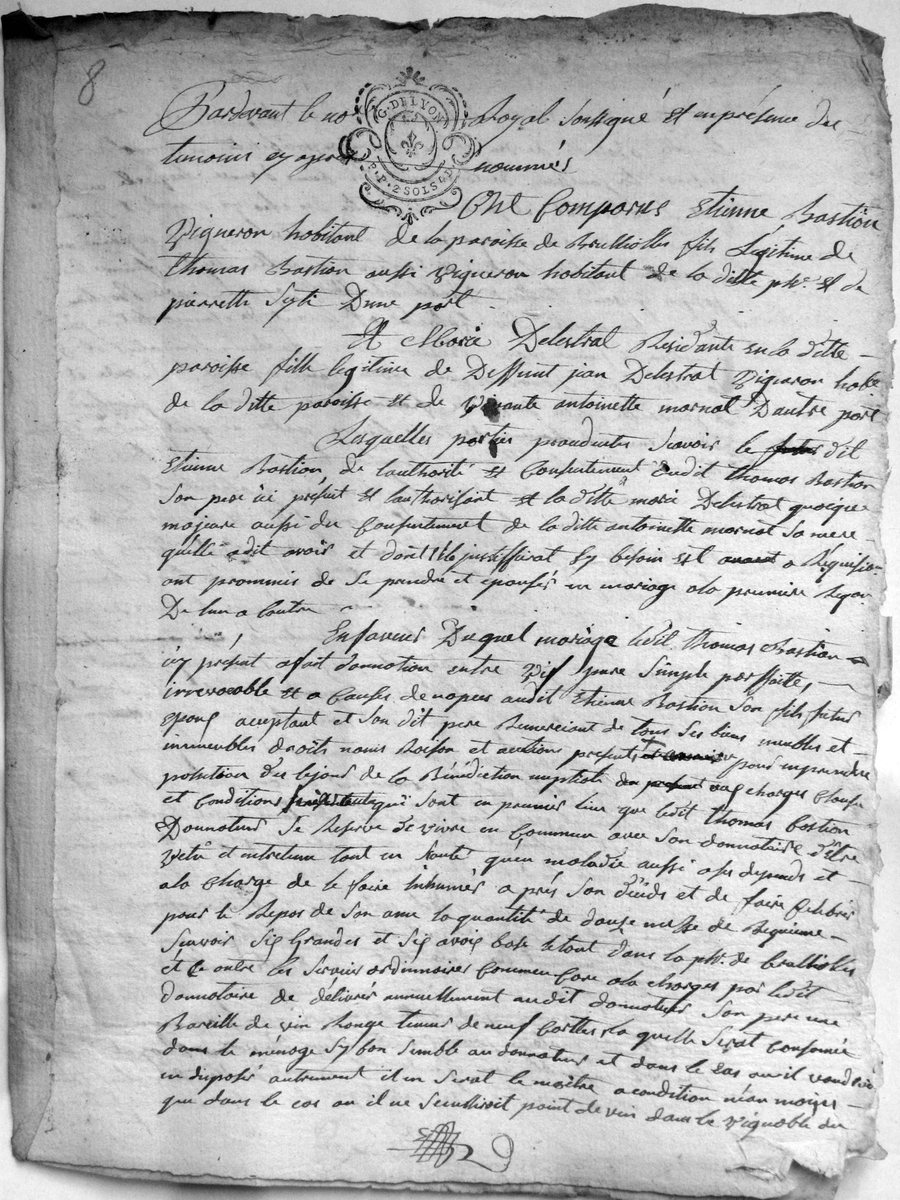 8
Pardevant le no Royal Soussigné et en présence des
temoins cy apres nommés
G. DE LYON
P.P. 2 SOLS 4 D
Ont Comparus Etienne Bastion
Vigneron habitant de la paroisse de Brulliolles fils Légitime de
thomas Bastion aussi vigneron habitant de la ditte psse et de
pierrette Dune part
Et Marie Delestral Residante en la ditte
paroisse fille legitime de Deffunt jean Delestral Vigneron habt
de la ditte paroisse et de vivante antoinette mornat Dautre part
Lesquelles parties proceductes Scavoir le dit
Etienne Bastion de l'authorité et Consentement dudit thomas Bastion
Son pere ici présent et l'authorisant et la ditte marie Delestral quoique
majeure aussi du Consentement de la ditte antoinette mornat Sa mere
quelle a dit avoir et dont elle justiffirat sy besoin est a Réquisition
ont prommis de Se prendre et epousés en mariage a la premiere Requi
De lun a lautre
En faveur Duquel mariage ledit thomas Bastion
icy présent a fait donnation entre Vif pure Simple parffaitte,
irrevocable et a Causes de nopces audit Etienne Bastion Son fils futur
epoux aceptant et Son dit pere Remerciant de tous Ses biens meubles et
immeubles droits noms Raison et actions présents pour en prendre
possession des le jour de la Bénédiction nuptiale aux charges Clauses
et Conditions qui sont en premier lieu que ledit thomas Bastion
Donnateur Se Réserve de vivre en Commun avec Son donnataire d'être
Vêtu et entretenu tant en Santé qu'en maladie aussi a Ses depends et
a la charge de le faire Inhumés a prés Son décéds et de faire Celebrés
pour le Repos de Son ame la quantité de douze messe de Requieme
Scavoir Six Grandes et Six a voix basse le tout dans la psse de brulliolles
et Ce outre les Services ordinnaires Commencare a la charges par ledit
donnataire de délivrés annuellement audit donnateur Son pere une
Bareille de vin Rouge teneur de neuf Cartes la quelle Serat Consomée
dans le ménage Sy bon Semble au donnateur et dans le Cas ou il voudroit
en disposés autrement il en Serat le maître a condition néan moins
que dans le cas ou il ne Seuilliroit point de vin dans le vignoble du